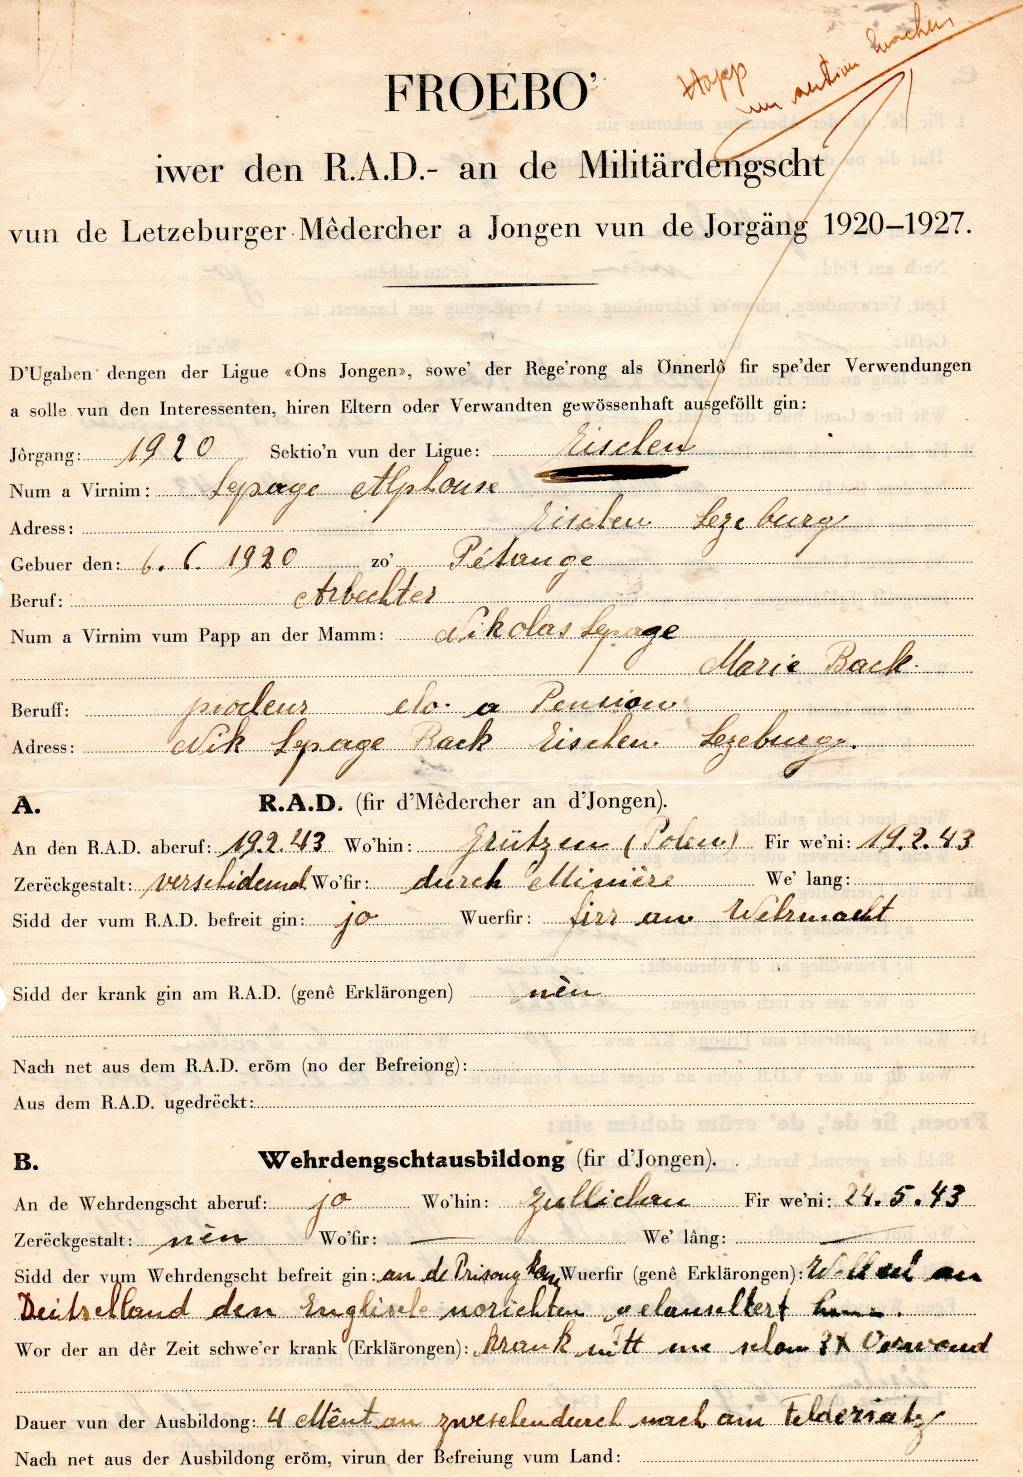 Happ
FROEBO'
iwer den R.A.D.- an de Militärdengscht
vun de Letzeburger Mêdercher a Jongen vun de Jorgäng 1920–1927.
D'Ugaben dengen der Ligue «Ons Jongen», sowe' der Rege'rong als Önnerlô fir spe'der Verwendungen
a solle vun den Interessenten, hiren Eltern oder Verwandten gewössenhaft ausgeföllt gin:
Jôrgang: 1920 Sektio'n vun der Ligue: Eischen
Num a Virnim: Lepage Alphonse
Adress: Eischen Lezeburg
Gebuer den: 6. 6. 1920 zo' Pétange
Beruf: Arbechter
Num a Virnim vum Papp an der Mamm: Nikolas Lepage
Marie Back.
Beruff: a Pension
Adress: Nik Lepage Back Eischen Lezeburg.
A. R.A.D. (fir d'Mêdercher an d'Jongen).
An den R.A.D. aberuf: 19.2.43 Wo'hin: Grützen (Polen) Fir we'ni: 19.2.43
Zerëckgestalt: verschidemol Wo'fir: durch Minière We' lang:
Sidd der vum R.A.D. befreit gin: jo Wuerfir: firr an Wehrmacht
Sidd der krank gin am R.A.D. (genê Erklärongen) nèn
Nach net aus dem R.A.D. eröm (no der Befreiong):
Aus dem R.A.D. ugedrëckt:
B. Wehrdengschtausbildong (fir d'Jongen).
An de Wehrdengscht aberuf: jo Wo'hin: Züllichau Fir we'ni: 24.5.43
Zerëckgestalt: nèn Wo'fir: — We' lâng: —
Sidd der vum Wehrdengscht befreit gin: an de Prisong Wuerfir (genê Erklärongen): an
Deitschland den Englische norichten gelauschtert
Wor der an dêr Zeit schwe'er krank (Erklärongen): krank nitt me schon 3X Verwond
Dauer vun der Ausbildong: 4 Mênt an zweschendurch nach am
Nach net aus der Ausbildong eröm, virun der Befreiung vum Land: